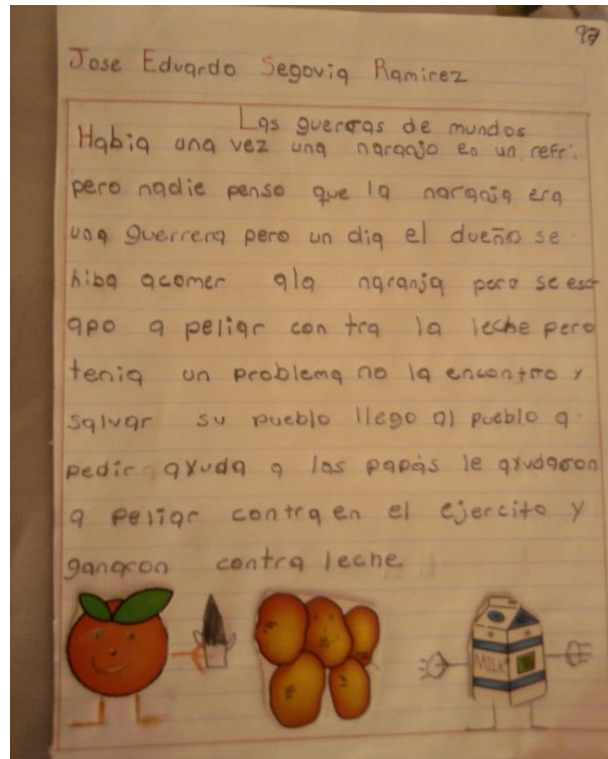 97
Jose Eduardo Segovia Ramirez
Las guerras de mundos
Habia una vez una naranjo en un refri.
pero nadie penso que la naranja era
una guerrera pero un dia el dueño se
hiba acomer ala naranja pero se esc
apo a peliar con tra la leche pero
tenia un problema no la encontro y
salvar su pueblo llego al pueblo a
pedir ayuda a las papas le ayudaron
a peliar contra en el ejercito y
ganaron contra leche.
MILK